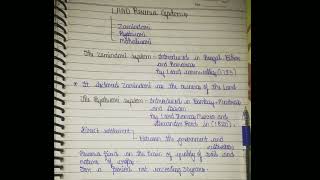 LAND Revenue Systems
Zamindari
Ryotwari
Mahalwari
The zamindari system - Introduced in Bengal, Bihar
and Banaras
by Lord Cornwallis (1793)
* It declared Zamindari are the owners of the Land
The Ryotwari System - Introduced in Bombay, Madras
and Assam
by Lord Thomas Munro and
Alexander Reed in (1820)
Direct settlement
Between the government and
cultivators
Revenue fixed on the basis of quality of soil and
nature of crops
For a period not exceeding 30 years